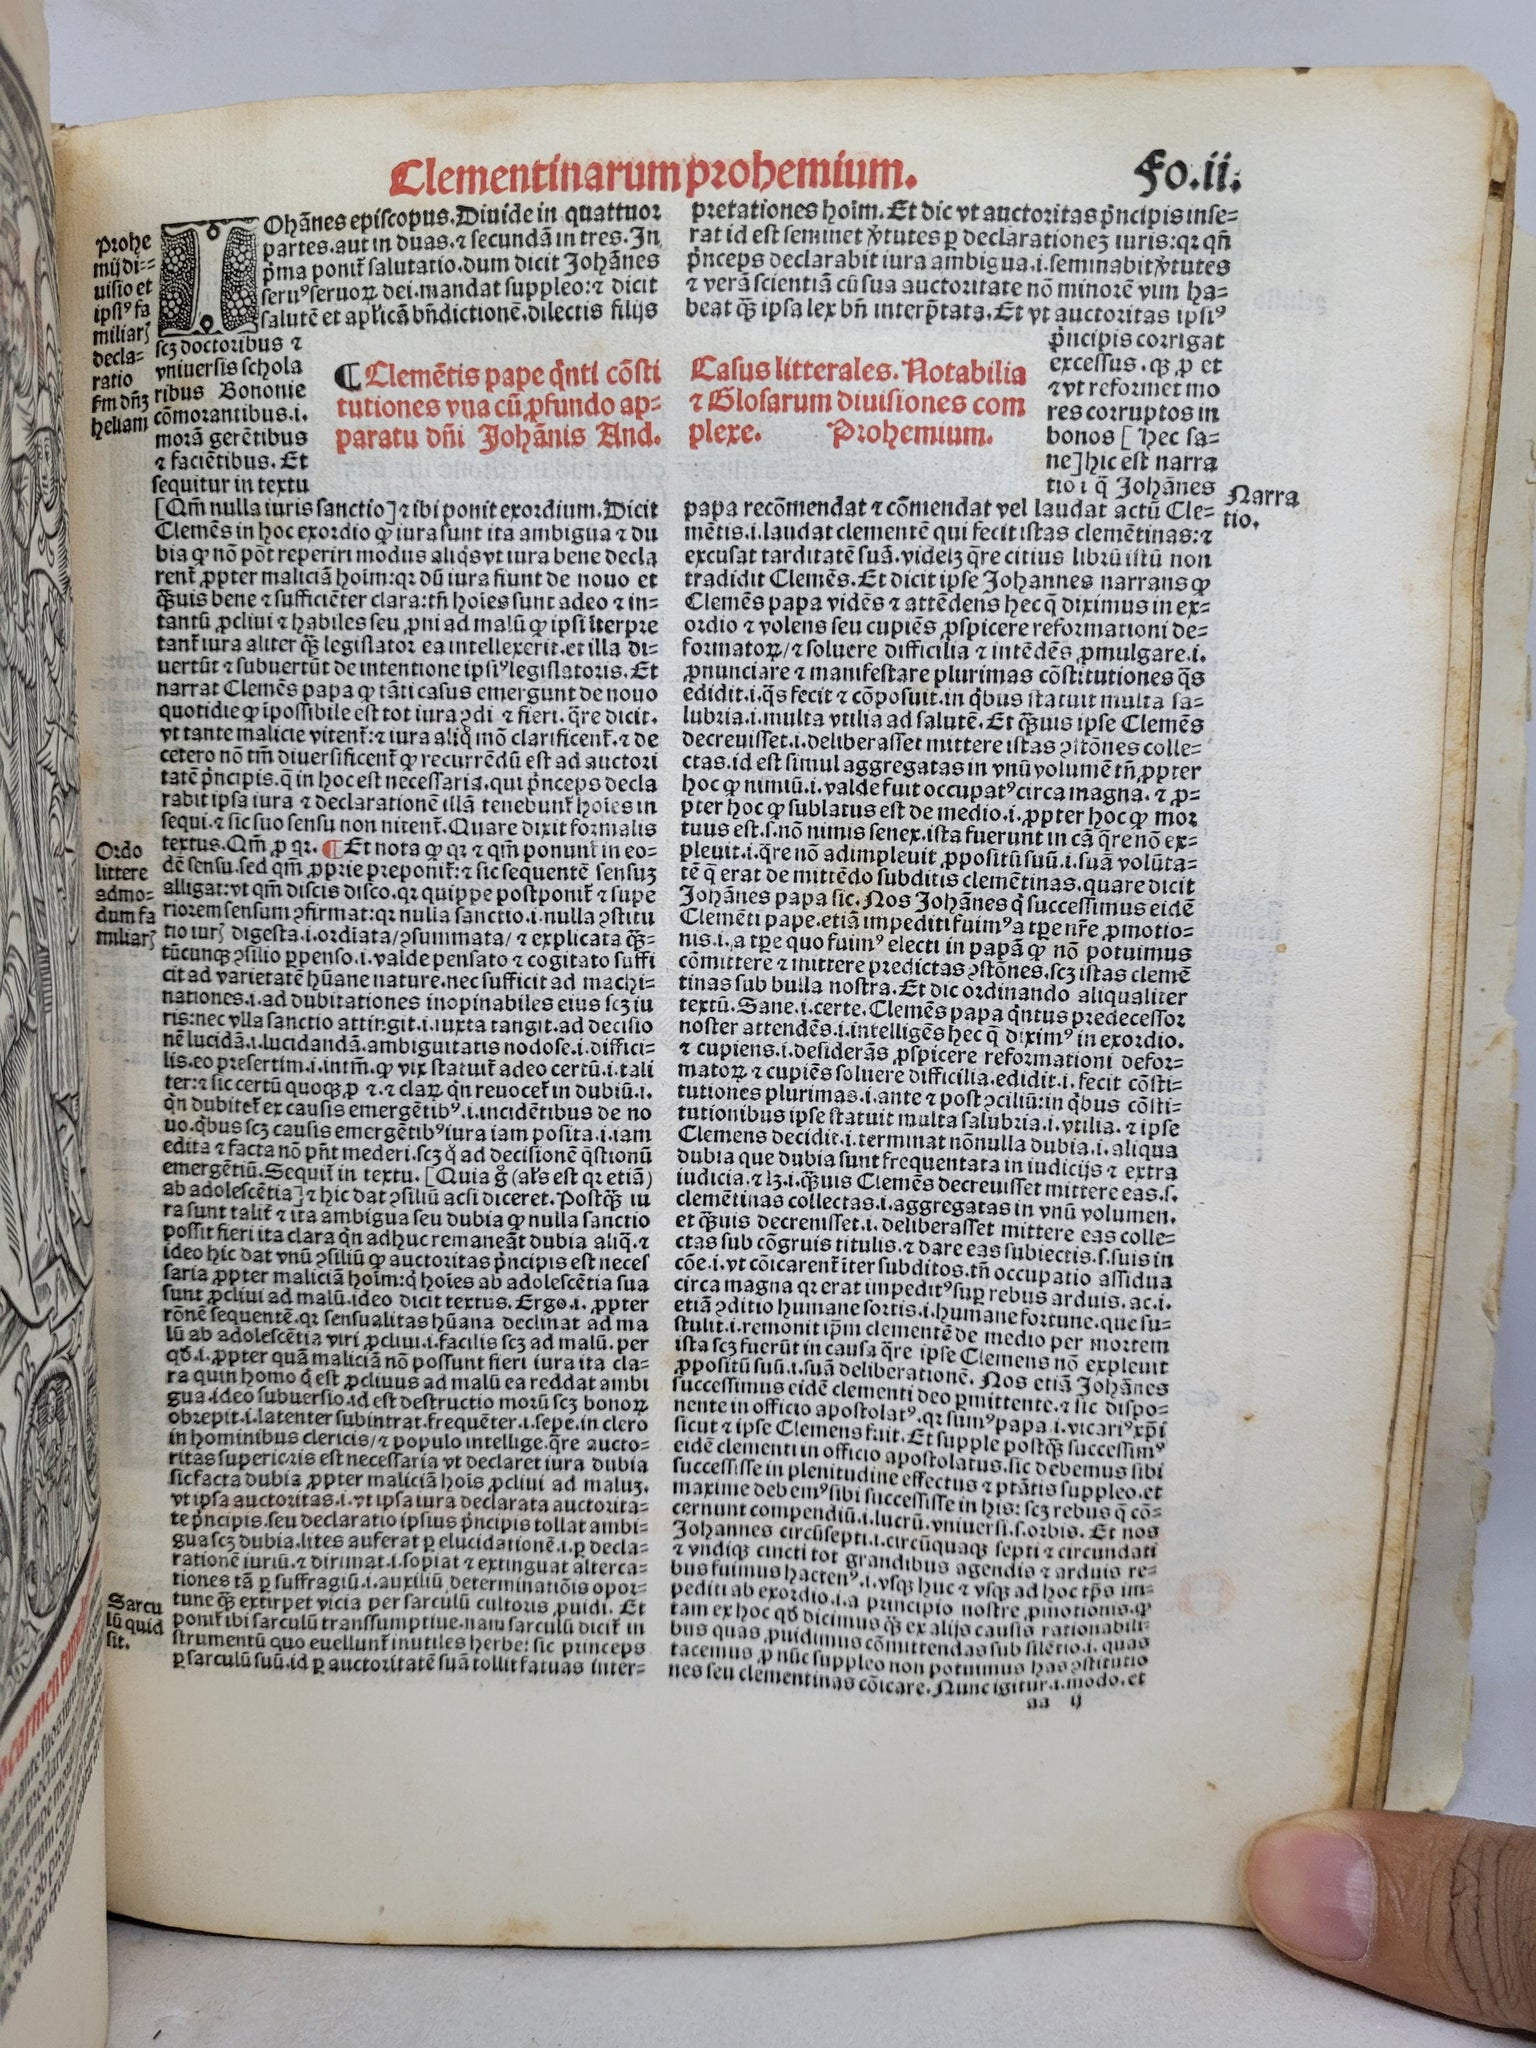 Clementinarum prohemium.
Fo.ii.
Prohe
mij di-
uisio et
ipsiꝰ fa
miliarꝭ
decla-
ratio
ẜm dn̄ꝫ
heliam
IOhānes episcopus. Diuide in quattuor
partes. aut in duas. ⁊ secundā in tres. In
p̄ma ponit̄ salutatio. dum dicit Johānes
seruꝰ seruoꝝ dei. mandat suppleo: ⁊ dicit
salutē et aplicā bn̄dictionē. dilectis filijs
scꝫ doctoribus ⁊
vniuersis schola
ribus Bononie
cōmorantibus .i.
morā gerētibus
⁊ faciētibus. Et
sequitur in textu
¶ Clemētis pape q̄nti cōsti
tutiones vna cū ꝓfundo ap-
paratu dn̄i Johānis And.
Casus litterales. Notabilia
⁊ Glosarum diuisiones com
plexe. Prohemium.
[Qm̄ nulla iuris sanctio] ⁊ ibi ponit exordium. Dicit
Clemēs in hoc exordio ꝙ iura sunt ita ambigua ⁊ du
bia ꝙ nō pōt reperiri modus aliq̄s vt iura bene decla
rent̄ ꝓpter maliciā hoīm: qꝛ dū iura fiunt de nouo et
q̄ꝫuis bene ⁊ sufficiēter clara: tn̄ hoīes sunt adeo ⁊ in-
tantū ꝓcliui ⁊ habiles seu ꝓni ad malū ꝙ ipsi īterpre
tant̄ iura aliter q̄ꝫ legislator ea intellexerit. et illa di-
uertūt ⁊ subuertūt de intentione ipsiꝰ legislatoris. Et
narrat Clemēs papa ꝙ tāti casus emergunt de nouo
quotidie ꝙ īpossibile est tot iura ꝯdi ⁊ fieri. q̄re dicit.
vt tante malicie vitent̄: ⁊ iura aliq̄ mō clarificent̄. ⁊ de
cetero nō tm̄ diuersificent̄ ꝙ recurrēdū est ad auctori
tatē p̄ncipis. q̄ in hoc est necessaria. qui p̄nceps decla
rabit ipsa iura ⁊ declarationē illā tenebunt̄ hoīes in
sequi. ⁊ sic suo sensu non nitent̄. Quare dixit formalis
textus. Qm̄ ꝓ qꝛ. ¶ Et nota ꝙ qꝛ ⁊ qm̄ ponunt̄ in eo-
dē sensu. sed qm̄ ꝓprie preponit̄: ⁊ sic sequentē sensuꝫ
alligat: vt qm̄ discis disco. qꝛ quippe postponit̄ ⁊ supe
riorem sensum ꝯfirmat: qꝛ nulla sanctio .i. nulla ꝯstitu
tio iurꝭ digesta .i. ordiata/ ꝯsummata/ ⁊ explicata q̄ꝫ-
tūcunqꝫ ꝯsilio ꝑpenso .i. valde pensato ⁊ cogitato suffi
cit ad varietatē hūane nature. nec sufficit ad machi-
nationes .i. ad dubitationes inopinabiles eius scꝫ iu
ris: nec vlla sanctio attingit .i. iuxta tangit. ad decisio
nē lucidā .i. lucidandā. ambiguitatis nodose .i. diffici-
lis. eo presertim .i. intm̄. ꝙ vix statuit̄ adeo certū .i. tali
ter: ⁊ sic certū quoqꝫ ꝓ ⁊. ⁊ claꝝ q̄n reuocet̄ in dubiū .i.
q̄n dubitet̄ ex causis emergētibꝰ .i. incidētibus de no
uo. q̄bus scꝫ causis emergētibꝰ iura iam posita .i. iam
edita ⁊ facta nō pn̄t mederi. scꝫ q̄ ad decisionē q̄stionū
emergētiū. Sequit̄ in textu. [Quia g̊ (al̄s est qꝛ etiā)
ab adolescētia] ⁊ hic dat ꝯsiliū acsi diceret. Postq̄ꝫ iu
ra sunt talit̄ ⁊ ita ambigua seu dubia ꝙ nulla sanctio
possit fieri ita clara q̄n adhuc remaneāt dubia aliq̄. ⁊
ideo hic dat vnū ꝯsiliū ꝙ auctoritas p̄ncipis est neces
saria ꝓpter maliciā hoīm: q̄ hoīes ab adolescētia sua
sunt ꝓcliui ad malū. ideo dicit textus. Ergo .i. ꝓpter
rōnē sequentē. qꝛ sensualitas hūana declinat ad ma
lū ab adolescētia viri ꝓcliui .i. facilis scꝫ ad malū. per
qđ .i. ꝓpter quā maliciā nō possunt fieri iura ita cla-
ra quin homo q̄ est ꝓcliuus ad malū ea reddat ambi
gua. ideo subuersio. id est destructio morū scꝫ bonoꝝ
obrepit .i. latenter subintrat. frequēter .i. sepe. in clero
in hominibus clericis/ ⁊ populo intellige. q̄re aucto-
ritas superioris est necessaria vt declaret iura dubia
sic facta dubia ꝓpter maliciā hoīs ꝓcliui ad maluꝫ.
vt ipsa auctoritas .i. vt ipsa iura declarata auctorita-
te p̄ncipis. seu declaratio ipsius p̄ncipis tollat ambi-
gua scꝫ dubia. lites auferat ꝑ elucidationē .i. ꝑ decla-
rationē iuriū. ⁊ dirimat .i. sopiat ⁊ extinguat alterca-
tiones tā ꝑ suffragiū .i. auxiliū determinatiōis opor-
tune q̄ꝫ extirpet vicia per sarculū cultoris ꝓuidi. Et
ponit̄ ibi sarculū transsumptiue. nam sarculū dicit̄ in
strumentū quo euellunt̄ inutiles herbe: sic princeps
ꝑ sarculū suū. id ꝑ auctoritatē suā tollit fatuas inter-
Ordo
littere
admo-
dum fa
miliarꝭ
Sarcu
lū quid
sit.
pretationes hoīm. Et dic vt auctoritas p̄ncipis inse-
rat id est seminet v̄tutes ꝑ declarationeꝫ iuris: qꝛ qn̄
p̄nceps declarabit iura ambigua .i. seminabit v̄tutes
⁊ verā scientiā cū sua auctoritate nō minorē vim ha-
beat q̄ꝫ ipsa lex bn̄ interp̄tata. Et vt auctoritas ipsiꝰ
p̄ncipis corrigat
excessus. qꝫ ꝓ et
⁊ vt reformet mo
res corruptos in
bonos [hec sa-
ne] hic est narra
tio ī q̄ Johānes
papa recōmendat ⁊ cōmendat vel laudat actū Cle-
mētis .i. laudat clementē qui fecit istas clemētinas: ⁊
excusat tarditatē suā. videlꝫ q̄re citius librū istū non
tradidit Clemēs. Et dicit ipse Johannes narrans ꝙ
Clemēs papa vidēs ⁊ attēdens hec q̄ diximus in ex-
ordio ⁊ volens seu cupiēs ꝓspicere reformationi de-
formatoꝝ/ ⁊ soluere difficilia ⁊ intēdēs ꝓmulgare .i.
ꝓnunciare ⁊ manifestare plurimas cōstitutiones q̄s
edidit .i. q̄s fecit ⁊ cōposuit. in q̄bus statuit multa sa-
lubria .i. multa vtilia ad salutē. Et q̄ꝫuis ipse Clemēs
decreuisset .i. deliberasset mittere istas ꝯstōnes colle-
ctas. id est simul aggregatas in vnū volumē tn̄ ꝓpter
hoc ꝙ nimiū .i. valde fuit occupatꝰ circa magna. ⁊ ꝓ-
pter hoc ꝙ sublatus est de medio .i. ꝓpter hoc ꝙ mor
tuus est .s. nō nimis senex. ista fuerunt in cā q̄re nō ex-
pleuit .i. q̄re nō adimpleuit ꝓpositū suū .i. suā volūta-
tē q̄ erat de mittēdo subditis clemētinas. quare dicit
Johānes papa sic. Nos Johānes q̄ successimus eidē
Clemēti pape. etiā impediti fuimꝰ a tꝑe nr̄e ꝓmotio-
nis .i. a tꝑe quo fuimꝰ electi in papā ꝙ nō potuimus
cōmittere ⁊ mittere predictas ꝯstōnes. scꝫ istas clemē
tinas sub bulla nostra. Et dic ordinando aliqualiter
textū. Sane .i. certe. Clemēs papa q̄ntus predecessor
noster attendēs .i. intelligēs hec q̄ diximꝰ in exordio.
⁊ cupiens .i. desiderās ꝓspicere reformationi defor-
matoꝝ ⁊ cupiēs soluere difficilia. edidit .i. fecit cōsti-
tutiones plurimas .i. ante ⁊ post ꝯciliū: in q̄bus cōsti-
tutionibus ipse statuit multa salubria .i. vtilia. ⁊ ipse
Clemens decidit .i. terminat nōnulla dubia .i. aliqua
dubia que dubia sunt frequentata in iudicijs ⁊ extra
iudicia. ⁊ lꝫ .i. q̄ꝫuis Clemēs decreuisset mittere eas .s.
clemētinas collectas .i. aggregatas in vnū volumen.
et q̄ꝫuis decreuisset .i. deliberasset mittere eas colle-
ctas sub cōgruis titulis. ⁊ dare eas subiectis .s. suis in
cōe .i. vt cōicarent̄ iter subditos. tn̄ occupatio assidua
circa magna qꝛ erat impeditꝰ suꝑ rebus arduis. ac .i.
etiā ꝯditio humane sortis .i. humane fortune. que su-
stulit .i. remouit ip̄m clementē de medio per mortem
ista scꝫ fuerūt in causa q̄re ipse Clemens nō expleuit
ꝓpositū suū .i. suā deliberationē. Nos etiā Johānes
successimus eidē clementi deo ꝑmittente. ⁊ sic dispo-
nente in officio apostolatꝰ. qꝛ sumꝰ papa .i. vicariꝰ xp̄i
sicut ⁊ ipse Clemens fuit. Et supple postq̄ꝫ successimꝰ
eidē clementi in officio apostolatus. sic debemus sibi
successisse in plenitudine effectus ⁊ ptātis suppleo. et
maxime debemꝰ sibi successisse in his: scꝫ rebus q̄ cō-
cernunt compendiū .i. lucrū. vniuersi .s. orbis. Et nos
Johannes circūsepti .i. circūquaqꝫ septi ⁊ circundati
⁊ vndiqꝫ cincti tot grandibus agendis ⁊ arduis re-
bus fuimus hactenꝰ .i. vsqꝫ huc ⁊ vsqꝫ ad hoc tp̄s im-
pediti ab exordio .i. a principio nostre ꝓmotionis. ꝙ
tam ex hoc qđ dicimus q̄ꝫ ex alijs causis rationabili-
bus quas ꝓuidimus cōmittendas sub silētio .i. quas
tacemus ꝓ nūc suppleo non potuimus has ꝯstitutio
nes seu clementinas cōicare. Nunc igitur .i. modo. et
Narra
tio.
aa ij